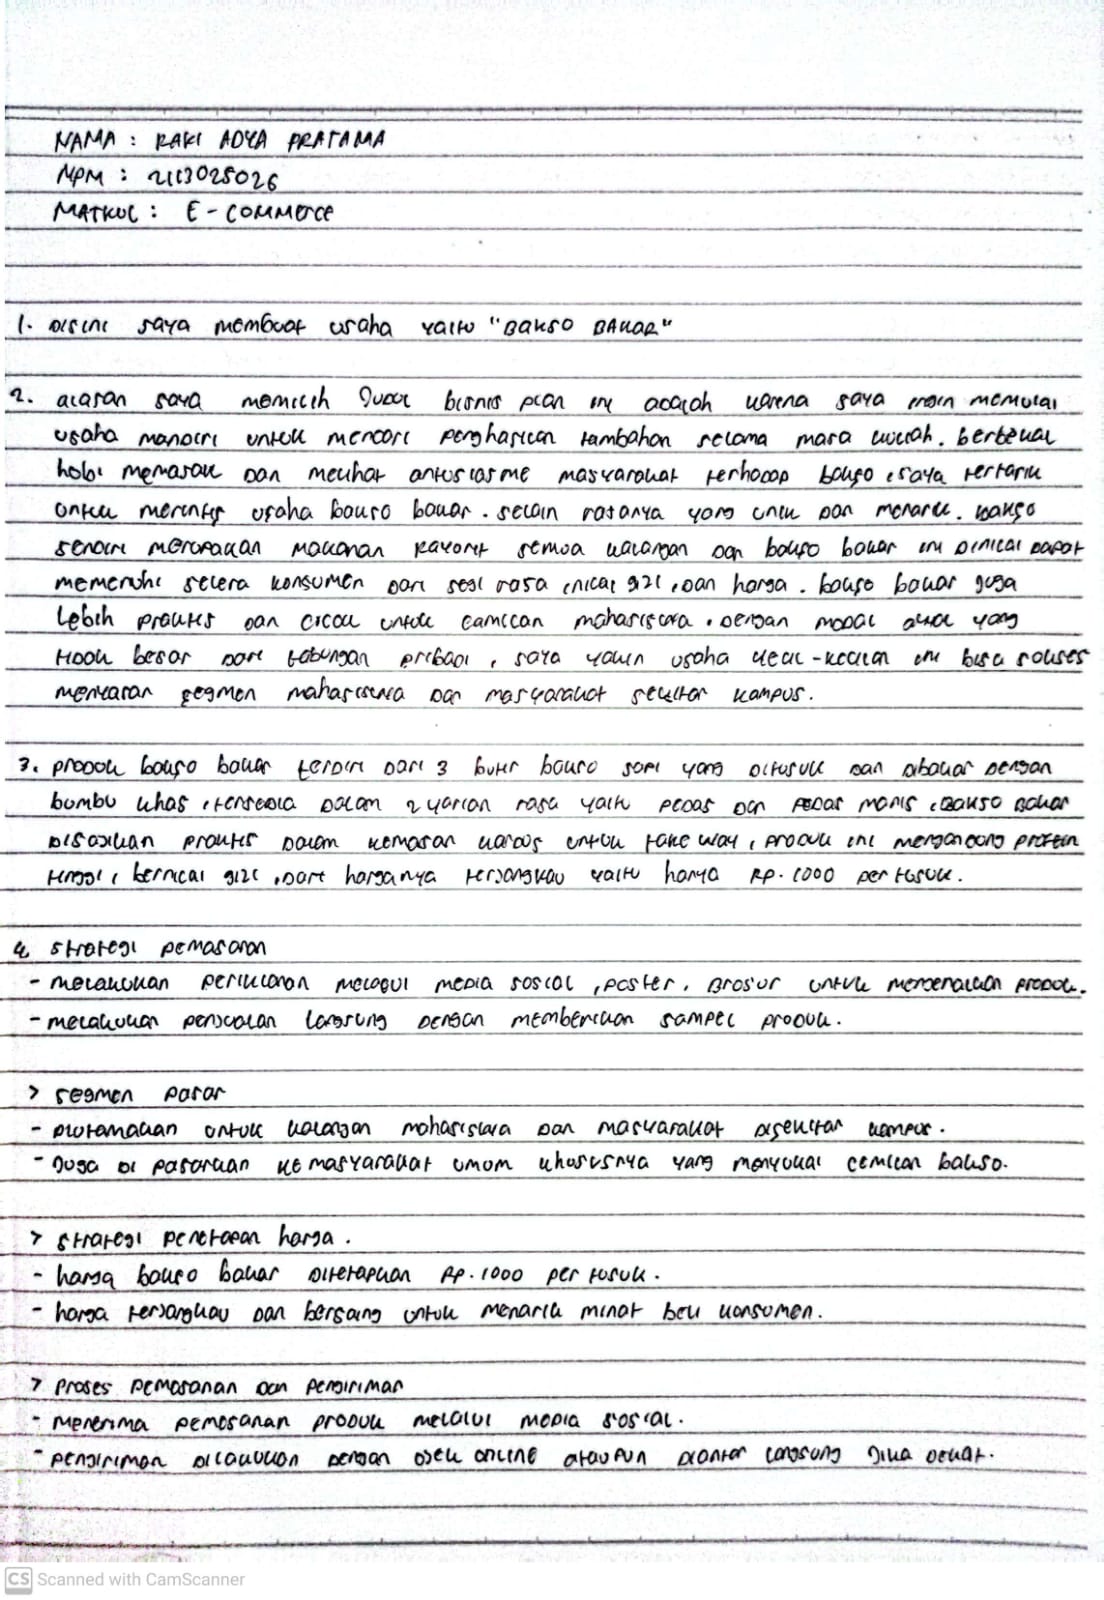 NAMA : RAKI ADYA PRATAMA
NPM : 2113025026
MATKUL : E - COMMERCE
1. DISINI saya membuat usaha yaitu "BAKSO BAKAR"
2. alasan saya memilih Judul bisnis plan ini adalah karena saya ingin memulai
usaha mandiri untuk mencari penghasilan tambahan selama masa kuliah. berbekal
hobi memasak dan melihat antusiasme masyarakat terhadap bakso, saya tertarik
untuk merintis usaha bakso bakar. selain rasanya yang unik dan menarik. bakso
sendiri merupakan makanan favorit semua kalangan dan bakso bakar ini dinilai dapat
memenuhi selera konsumen dari segi rasa, nilai gizi, dan harga. bakso bakar juga
lebih praktis dan cocok untuk camilan mahasiswa. dengan modal awal yang
tidak besar dari tabungan pribadi, saya yakin usaha kecil-kecilan ini bisa sukses
menyasar segmen mahasiswa dan masyarakat sekitar kampus.
3. produk bakso bakar terdiri dari 3 butir bakso sapi yang ditusuk dan dibakar dengan
bumbu khas, tersedia dalam 2 varian rasa yaitu pedas dan pedas manis, bakso bakar
disajikan praktis dalam kemasan kardus untuk take way, produk ini mengandung protein
tinggi, bernilai gizi, dari harganya terjangkau yaitu hanya Rp. 1000 per tusuk.
4. strategi pemasaran
- melakukan periklanan melalui media sosial, poster, brosur untuk mengenalkan produk.
- melakukan penjualan langsung dengan memberikan sampel produk.
> segmen pasar
- diutamakan untuk kalangan mahasiswa dan masyarakat disekitar kampus.
- Juga di pasarkan ke masyarakat umum khususnya yang menyukai cemilan bakso.
> strategi penetapan harga.
- harga bakso bakar ditetapkan Rp. 1000 per tusuk.
- harga terjangkau dan bersaing untuk menarik minat beli konsumen.
> proses pemesanan dan pengiriman
- menerima pemesanan produk melalui media sosial.
- pengiriman dilakukan dengan ojek online ataupun diantar langsung jika dekat.
CS Scanned with CamScanner